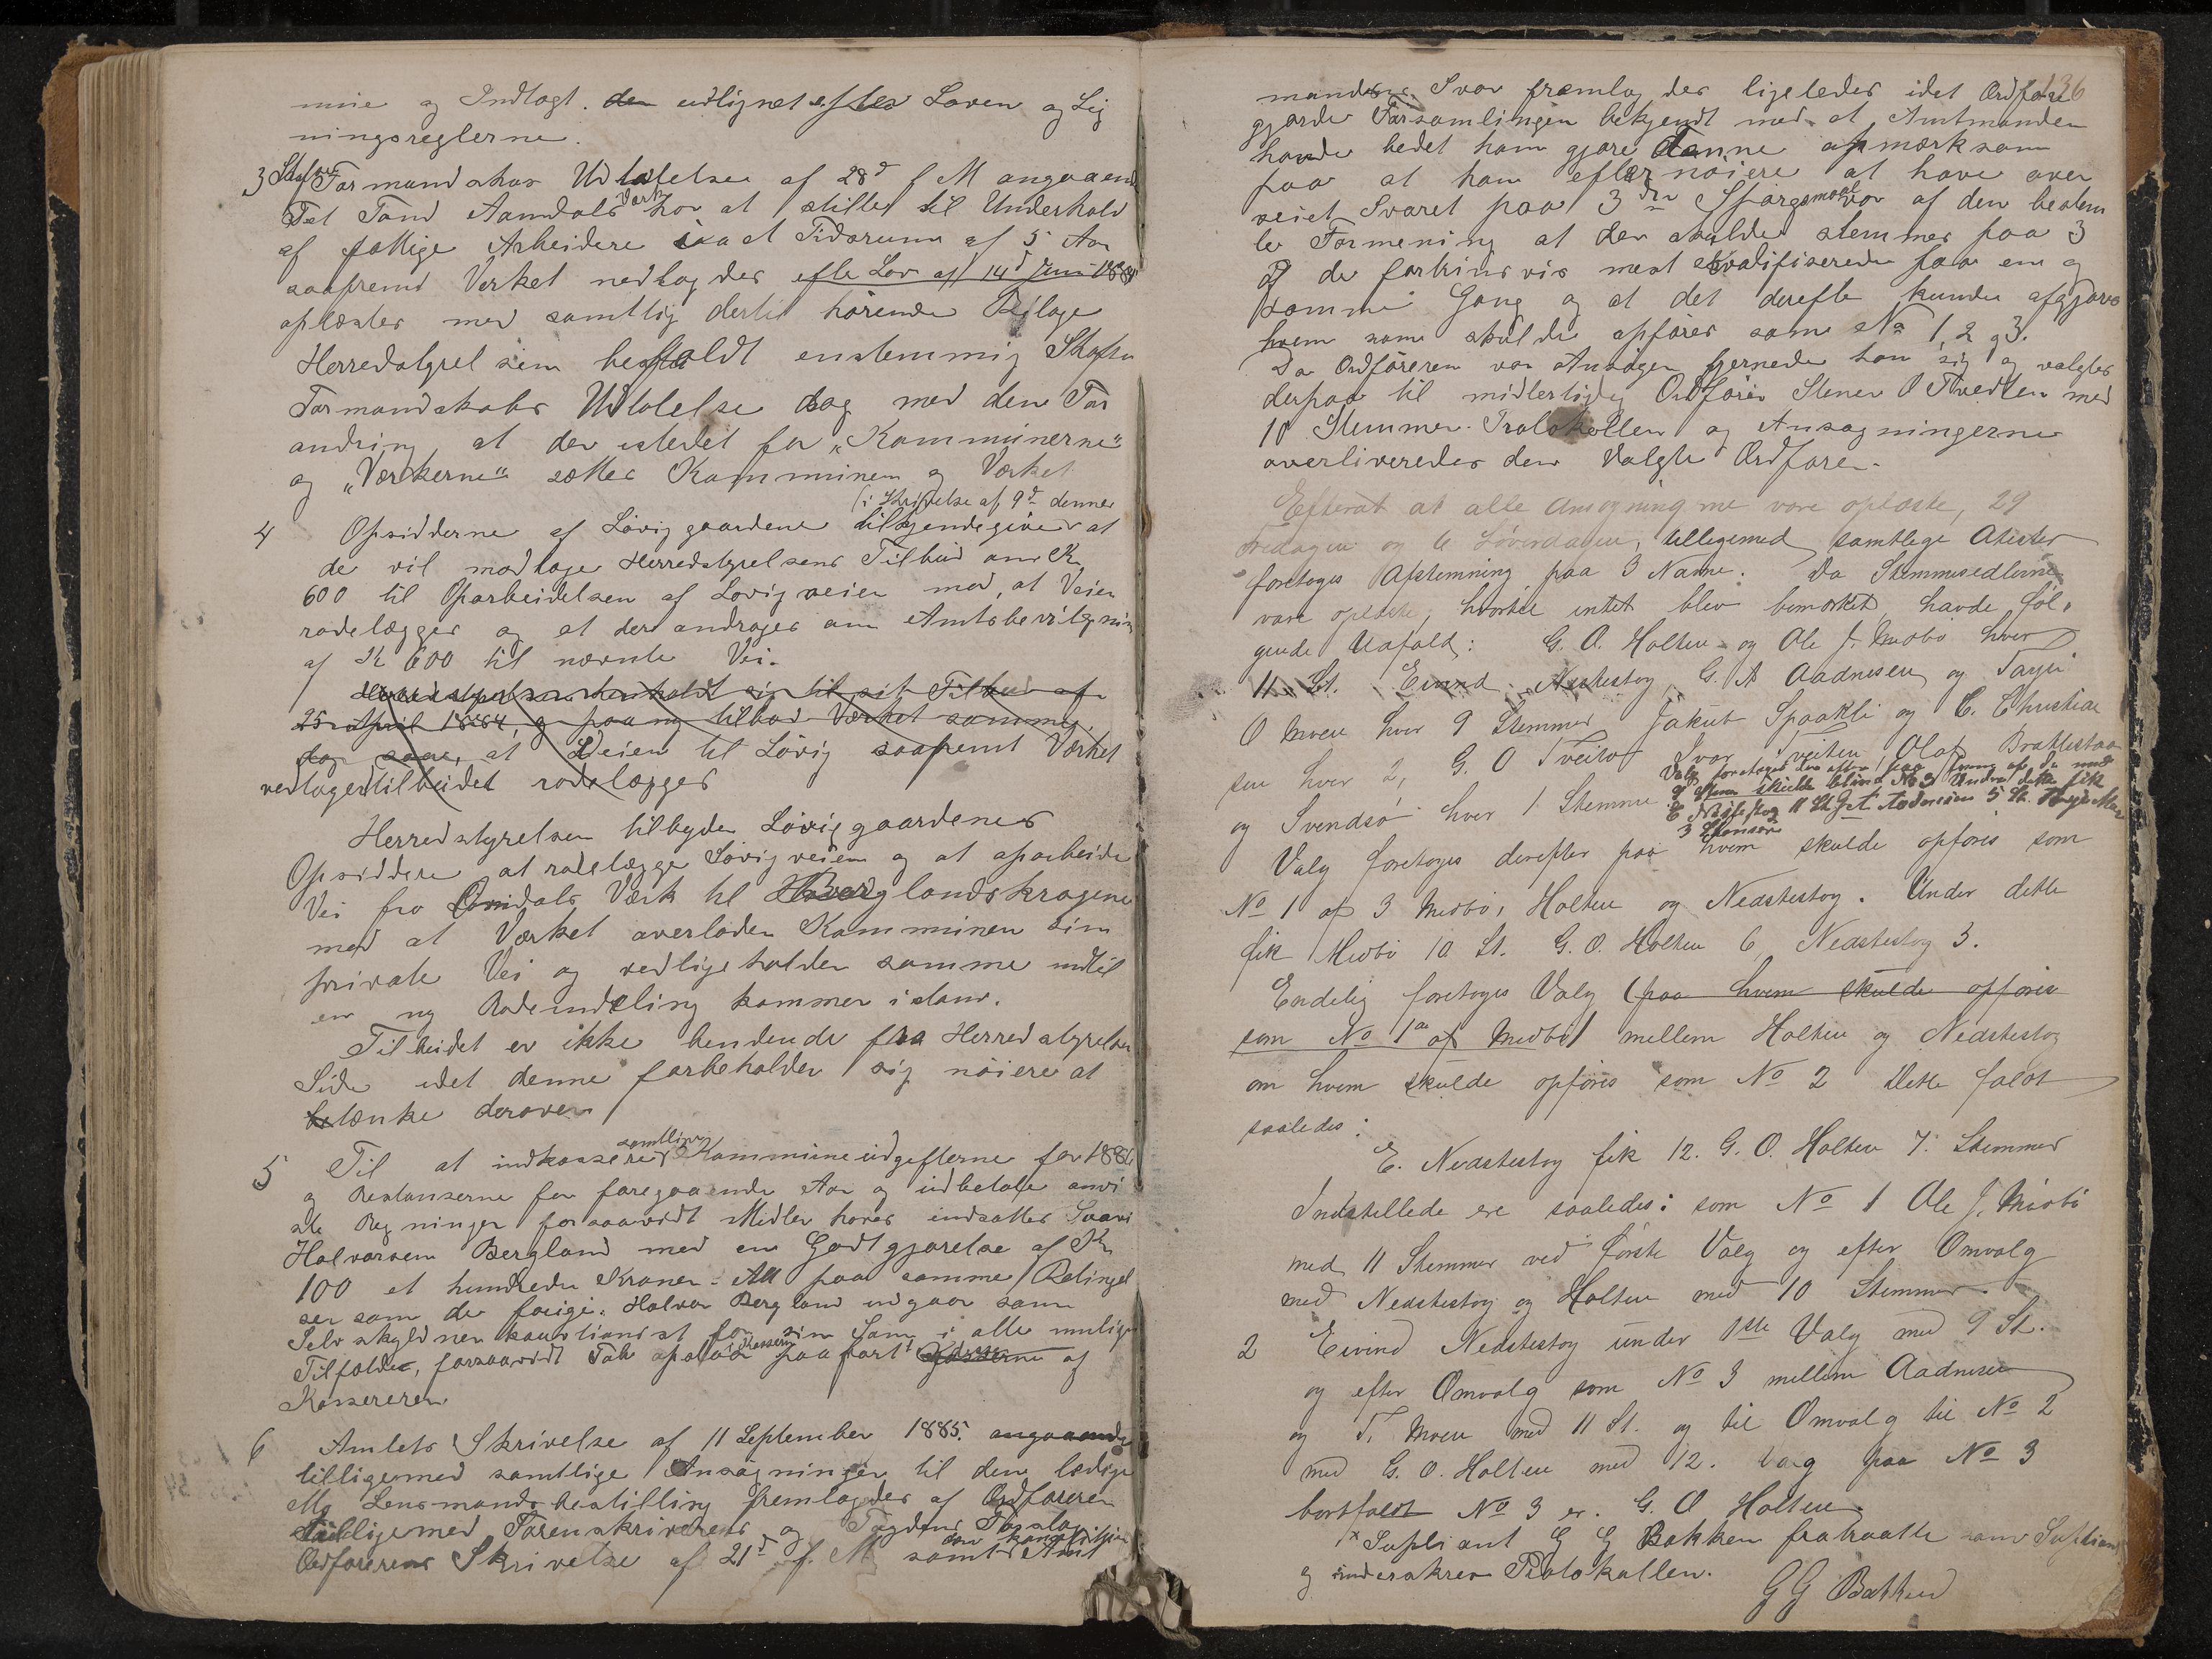 mue og Indtægt. den udlignet efter Loven og Lig
ningsreglerne.
3 Skafse Formandskas Udtalelse af 28d f M angaaende
Det Tand Aamdals Værk har at stille til Underhold
af fattige Arbeidere i et Tidsrum af 5 Aar
saafremt Verket nedlægges efter Lov af 14d Juni 1884
oplæstes med samtlig dertil hørende Bilage
Herredstyrelsen besluldt enstemmig Skafse
Formandskabs Udtalelse dog med den For
andring at der istedet for „Kommunerne"
og „Værkerne" sættes Kommunen og Værket
(i Skrivelse af 9d dennes
4 Opsidderne af Løviggaardene tilkjendegiver at
de vil modtage Herredstyrelsens Tilbud om Kr
600 til Oparbeidelsen af Løvigveien mod, at Veien
rodelægges og at der andrages om Amtsbevilgning
af Kr 600 til nævnte Vei.
Herredstyrelsen henholdt sig til sit Tilbud af
25 April 1884, og paa ny tilbød Værket samme
dag saae, at Veien til Løvig saafremt Værket
vedtager tilbudet rodelægges
Herredstyrelsen tilbyder Løviggaardenes
Opsiddere at rodelægge Løvigveien og at oparbeide
Vei fra Omdals Værk til Berglandskragene
mod at Værket overlader Kommunen sin
private Vei og vedligeholder samme indtil
en ny Rodeinddeling kommer istand.
Tilbudet er ikke bindende fra Herredstyrelsen
Side idet denne forbeholder sig nøiere at
betænke derover
5 Til at indkassere samtlige Kommuneudgifterne for 1886
og Restanserne for foregaaende Aar og udbetale anvi
ste Regninger forsaavidt Midler haves indsattes Svani
Halvorsen Bergland med en Godtgjørelse af Kr
100 et hundrede Kroner - Alt paa samme Betingel
ser som de forige. Halvor Bergland indgaar som
Selvskyldnerkautionist for sin Søn i alle mulige
Tilfælde, forsaavidt Tab opstaar Kassern paaført Kasserne af
Kassereren
6 Amtets Skrivelse af 11 September 1885. angaaende
tilligemed samtlige Ansøgninger til den ledige
Mo Lensmandsbestilling fremlagdes af Ordføreren
Tilligemed Sorenskriverens og Fogdens Forslag.
Ordførerens Skrivelse af 21d f. M samt Amt
136
mandens Svar fremlagdes ligeledes idet Ordføre
gjorde Forsamlingen bekjendt med at Amtmanden
havde bedet ham gjøre denne opmærksom
paa at han efter nøiere at have over
veiet Svaret paa 3die Spørgsmaal var af den bestem
te Formening at der skulde stemmes paa 3
af de fortrinsvis mest kvalifiserede paa en og
samme Gang og at det derefter kunde afgjøres
hvem som skulde opføres som No 1, 2 og 3.
Da Ordføreren var Ansøger fjernede han sig og valgtes
derpaa til midlertidig Ordfører Stener O Tvedten med
10 Stemmer. Protokollen og Ansøgningerne
overliveredes den valgte Ordfører.
Efterat at alle Ansøgningerne vare oplæste, 29
Fredagen og 6 Løverdagen, tilligemed samtlige Atester
foretoges Afstemning paa 3 Navne. Da Stemmesedlerne
vare oplæste, hvortil intet blev bemærket havde føl,
gende Udfald: G. O. Holten og Ole J. Midbø hver
11 St. Eivind Nedstestog, G. A Aadnesen og Tarjei
O Moen hver 9 Stemmer Jakob Spaakli og C. Christian
sen hver 2, G. O Tveito Ivar Tveiten Olaf Brattestaa
og Svendsø hver 1 Stemme. Valg foretages derefter paa hvem af de med
9 Stem skulde blive No 3 Under dette fik
E Nedstestog 11 St G A Andersen 5 St. Tarjei Moen
3 Stemmer
Valg foretoges derefter paa hvem skulde opføres som
No 1 af 3 Midbø, Holten og Nedstestog. Under dette
fik Midbø 10 St. G. O. Holten 6, Nedstestog 3.
Endelig foretoges Valg (paa hvem skulde opføres
som No 1a af Midbø) mellem Holten og Nedstestog
om hvem skulde opføres som No 2 Dette faldt
saaledes:
E. Nedstestog fik 12. G. O. Holten 7. Stemmer
Indstillede ere saaledes: som No 1 Ole J. Midbø
med 11 Stemmer ved første Valg og efter Omvalg
med Nedstestog og Holten med 10 Stemmer.
2 Eivind Nedstestog under 1ste Valg med 9 St.
og efter Omvalg som No 3 mellem Aadnesen
og T. Moen med 11 St. og til Omvalg til No 2
med G. O. Holten med 12. Valg paa No 3
bortfaldt No 3 er. G. O Holten.
x Supliant G G Bakken fratraatte som Supliant
og underskrev Protokollen.
G G Bakken